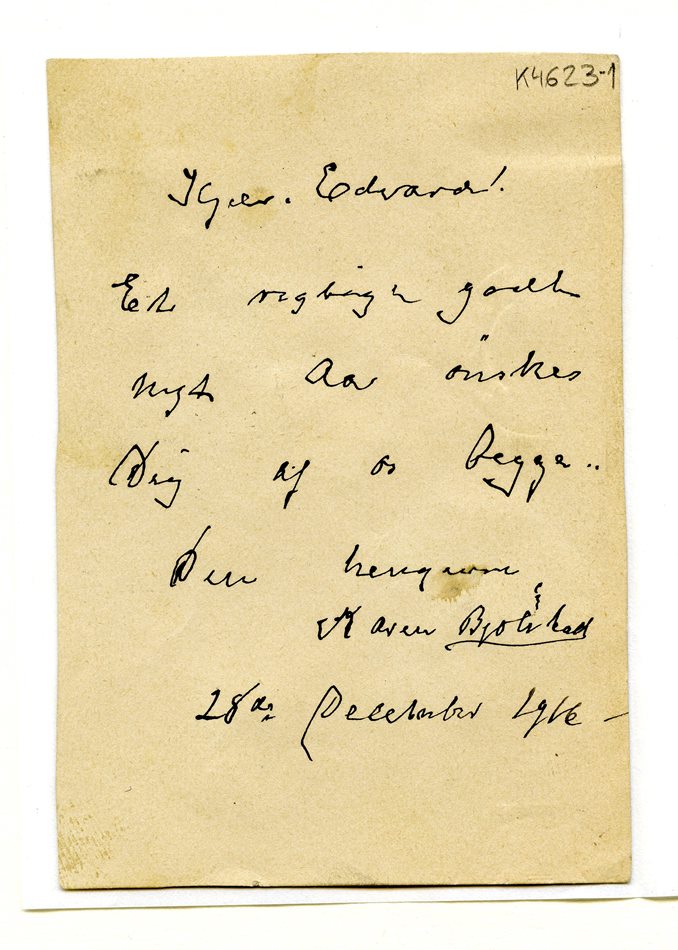 K4623-1
Kjere. Edvard!
Et rigtigt godt
nyt Aar önskes
Dig af os begge..
Din hengivne
Karen Bjølstad
28de December 1916